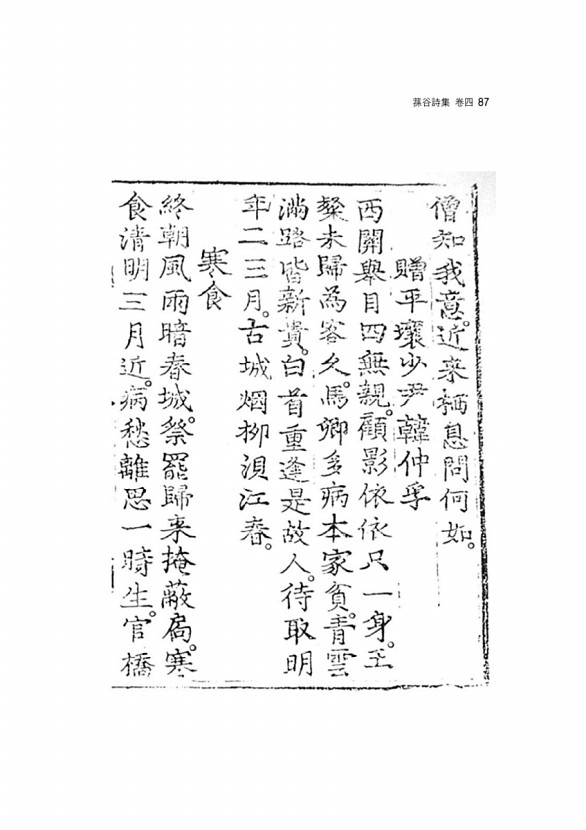 蓀谷詩集 卷四 87
僧知我意。近来栖息問何如。
贈平壤少尹韓仲孚
西關舉目四無親。顧影依依只一身。王
粲未歸為客久。馬卿多病本家貧。青雲
滿路皆新貴。白首重逢是故人。待取明
年二三月。古城烟柳浿江春。
寒食
終朝風雨暗春城。祭罷歸来掩蔽扃。寒
食清明三月近。病愁離思一時生。官橋